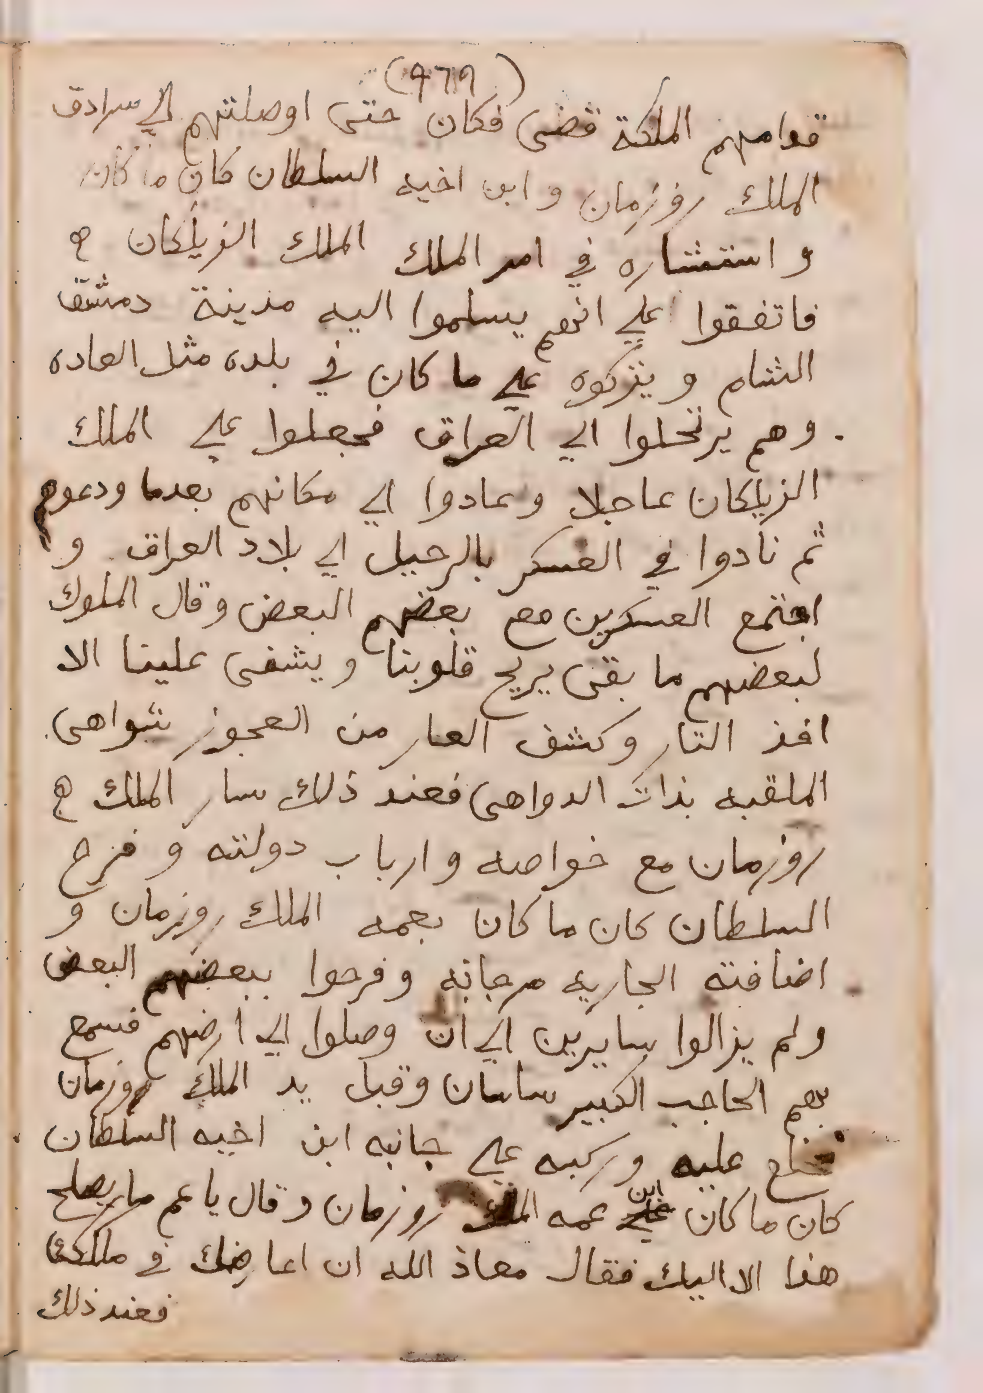 (٩٦٩)
قدامهم الملكة قضى فكان حتى اوصلتهم الي سرادق
الملك روزمان و ابن اخيه السلطان كان ما كان
و استشاره في امر الملك الملك الزبلكان ه
فاتفقوا علي انهم يسلموا اليه مدينة دمشق
الشام و يتركوه علي ما كان في بلده مثل العاده
وهم يرتحلوا الي العراق فجعلوا علي الملك
الزبلكان عاجلا وعادوا الي مكانهم بعدما ودعوهم
ثم نادوا في العسكر بالرحيل الي بلاد العراق و
اجتمع العسكرين مع بعضهم البعض وقال الملوك
لبعضهم ما بقى يريح قلوبنا ويشفى علينا الا
اخذ التار وكشف العار من العجوز شواهى
الملقبه بذات الدواهى فعند ذلك سار الملك ه
روزمان مع خواصه وارباب دولته و فرح
السلطان كان ما كان بعمه الملك روزمان و
اضافته الجاريه مرجانه وفرحوا ببعضهم البعض
ولم يزالوا سايرين الي ان وصلوا الي ارضهم فسمع
بهم الحاجب الكبير ساسان وقبل يد الملك روزمان
فخلع عليه وركبه علي جانبه ابن اخيه السلطان
كان ما كان ابن عمه الملك روزمان وقال يا عم ما يصلح
هذا الا اليك فقال معاذ الله ان اعارضك في ملكك
فعند ذلك